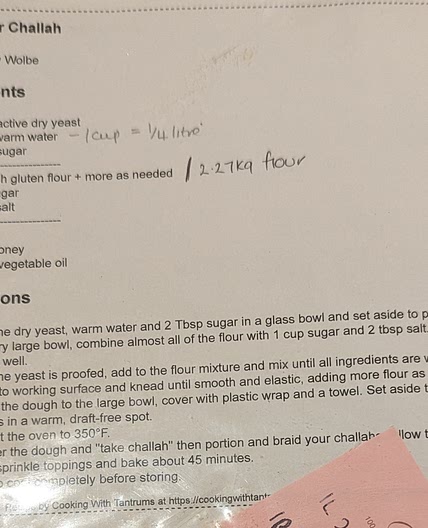 r Challah
Wolbe
nts
active dry yeast
warm water - 1 cup = 1/4 litre
sugar
h gluten flour + more as needed / 2.27kg flour
gar
salt
oney
vegetable oil
ons
he dry yeast, warm water and 2 Tbsp sugar in a glass bowl and set aside to p
ry large bowl, combine almost all of the flour with 1 cup sugar and 2 tbsp salt.
well.
he yeast is proofed, add to the flour mixture and mix until all ingredients are w
to working surface and knead until smooth and elastic, adding more flour as
the dough to the large bowl, cover with plastic wrap and a towel. Set aside t
s in a warm, draft-free spot.
t the oven to 350°F.
er the dough and "take challah" then portion and braid your challahs llow t
sprinkle toppings and bake about 45 minutes.
completely before storing.
by Cooking With Tantrums at https://cookingwithtant